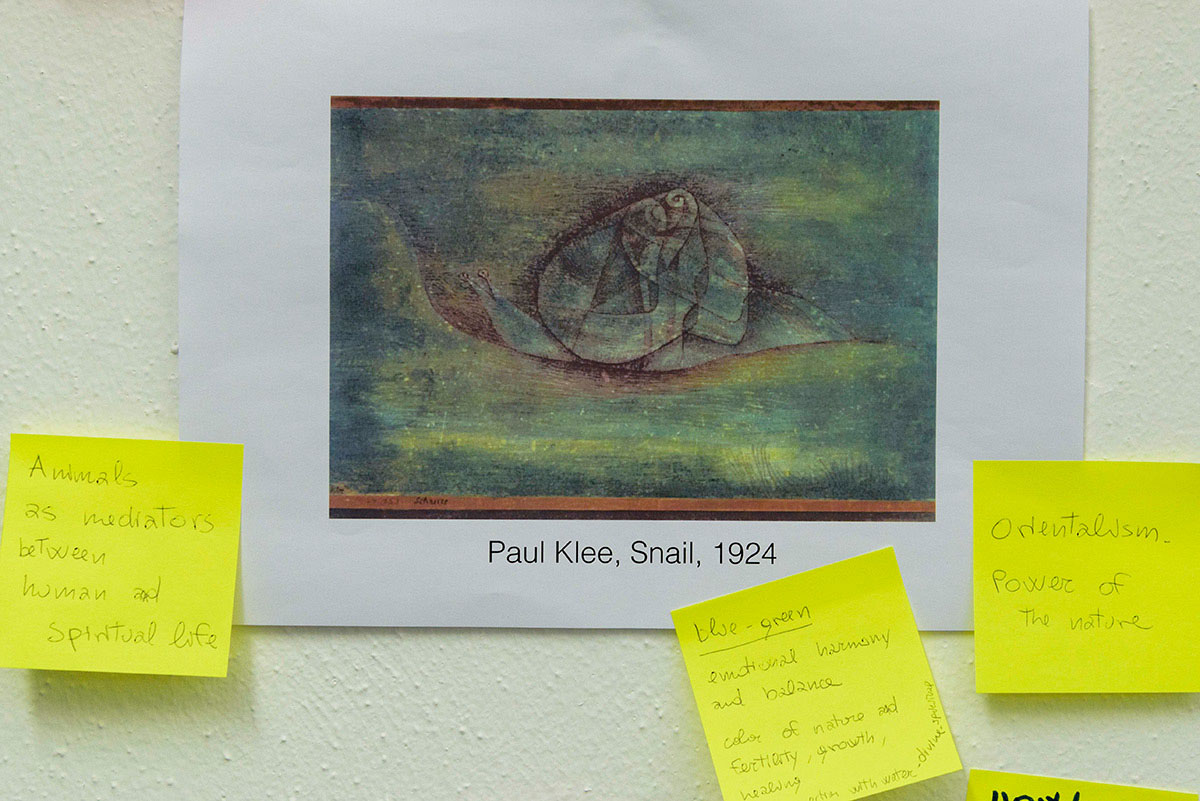 Paul Klee, Snail, 1924
Animals
as mediators
between
human and
spiritual life
blue-green
emotional harmony
and balance
color of nature and
fertility, growth,
healing
with water - divine
Orientalism.
Power of
the nature